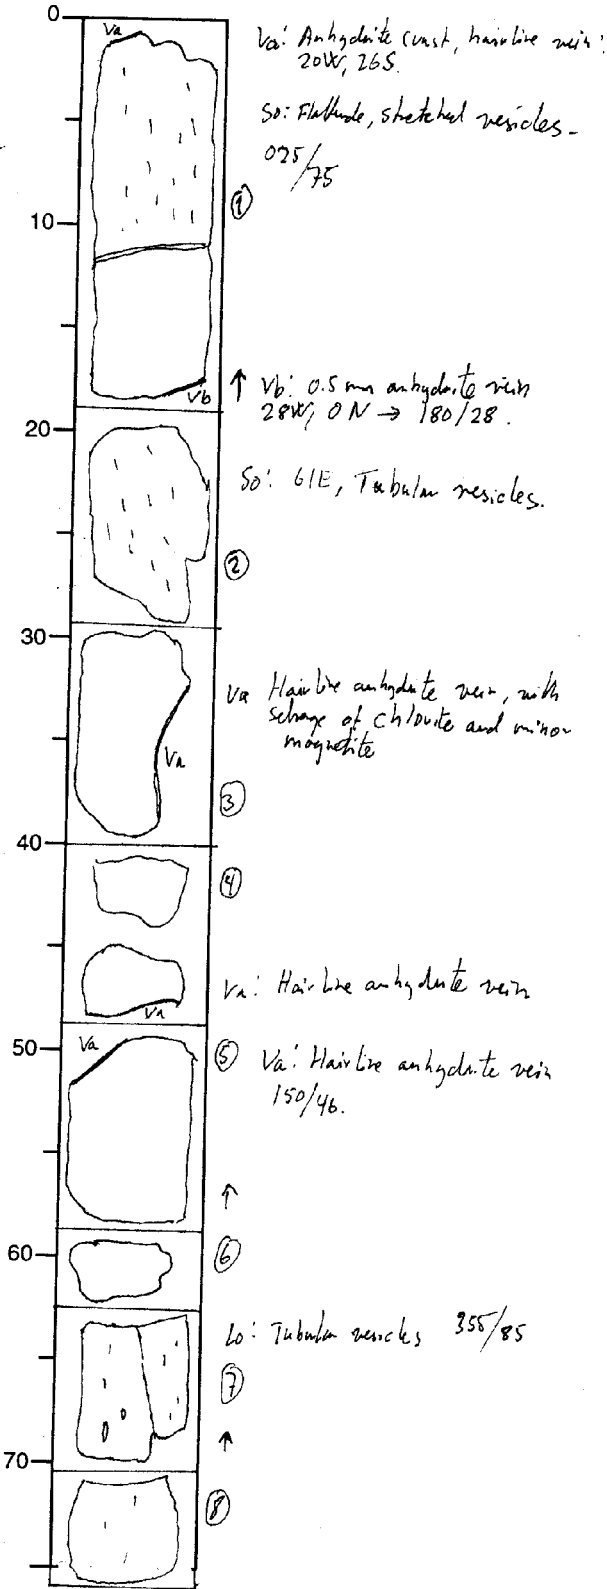 0
Va
Va: Anhydrite crust, hairline vein;
20W, 26S.
So: Flattende, stretched vesicles.
025/75
10
①
Vb
↑
Vb: 0.5 mm anhydrite vein
28W, 0N → 180/28.
20
So: 61E, Tubular vesicles.
②
30
Va
Va Hairline anhydrite vein, with
selvage of chlorite and minor
magnetite
③
40
④
Va
Va: Hairline anhydrite vein
50
Va
⑤
Va: Hairline anhydrite vein
150/46.
↑
60
⑥
Lo: Tubular vesicles 355/85
⑦
↑
70
⑧